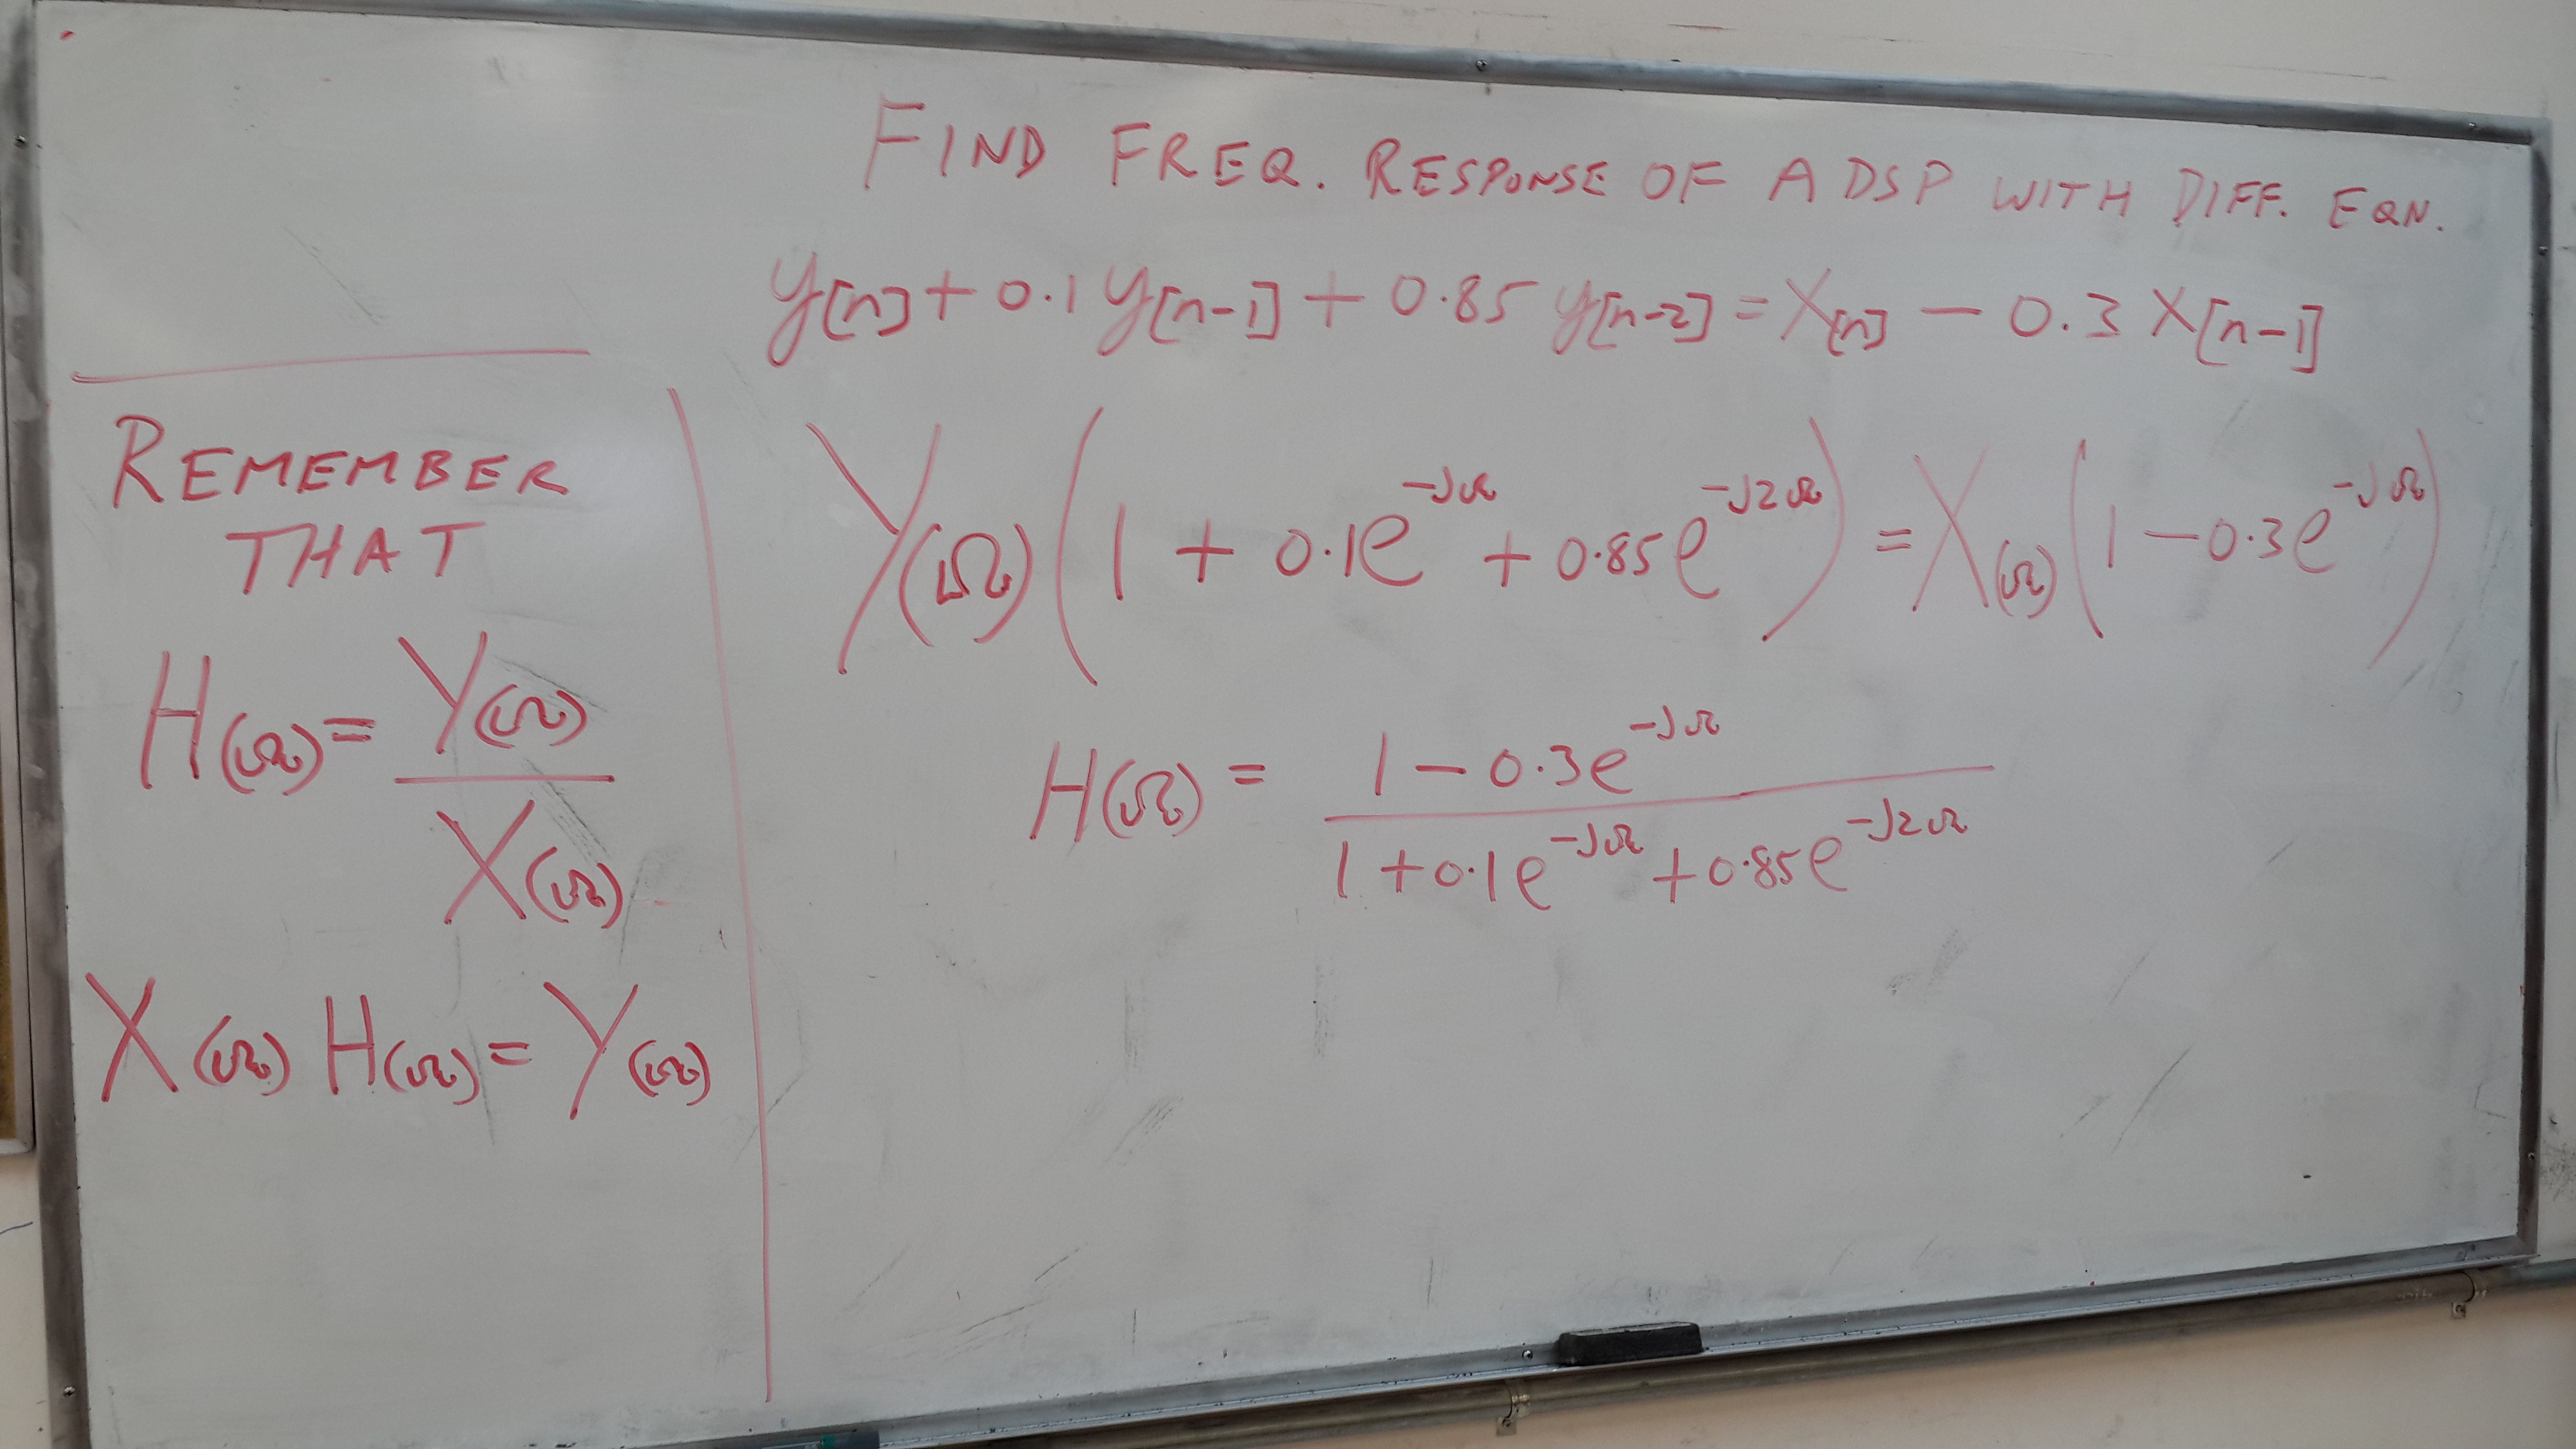 FIND FREQ. RESPONSE OF A DSP WITH DIFF. EQN.
y[n] + 0.1 y[n-1] + 0.85 y[n-2] = x[n] - 0.3 x[n-1]
REMEMBER
THAT
H(Ω) = Y(Ω) / X(Ω)
X(Ω) H(Ω) = Y(Ω)
Y(Ω) (1 + 0.1e^{-jΩ} + 0.85e^{-j2Ω}) = X(Ω) (1 - 0.3e^{-jΩ})
H(Ω) = (1 - 0.3e^{-jΩ}) / (1 + 0.1e^{-jΩ} + 0.85e^{-j2Ω})